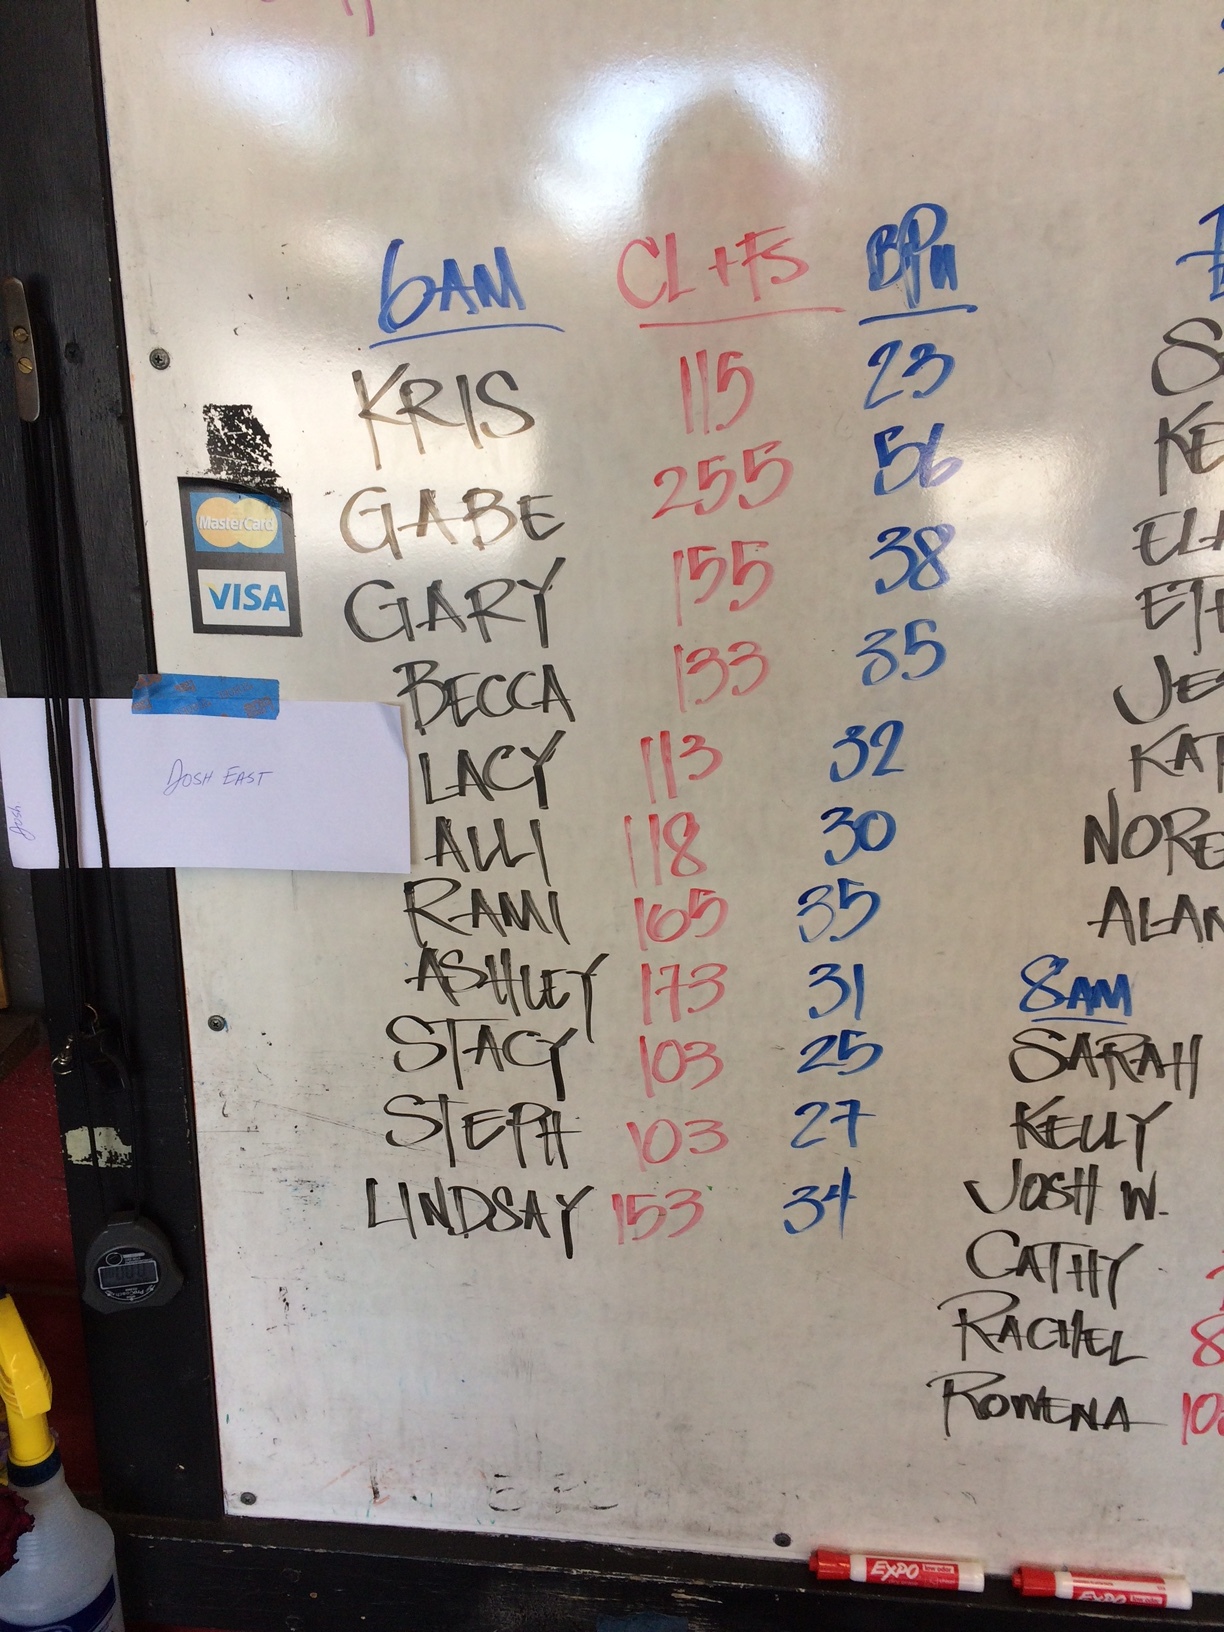 6AM CL+FS BPM
KRIS 115 23
GABE 255 56
GARY 155 38
BECCA 133 35
LACY 113 32
ALLI 118 30
RAMI 165 35
ASHLEY 173 31
STACY 103 25
STEPH 103 27
LINDSAY 153 34
MasterCard
VISA
JOSH EAST
Josh
KE
ELA
ETH
JES
KAT
NORE
ALAN
8AM
SARAH
KELLY
JOSH W.
CATHY
RACHEL 8
ROWENA 10
EXPO
EXPO